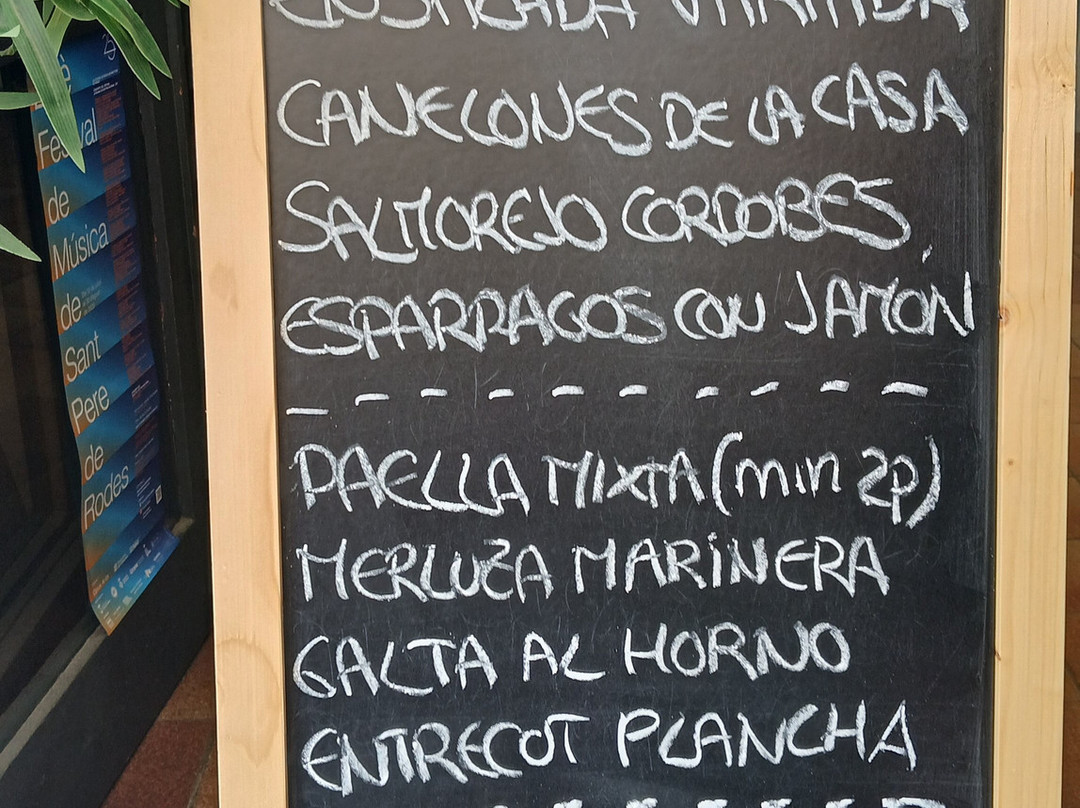 ENSALADA VARIADA
CANELONES DE LA CASA
SALMOREJO CORDOBES
ESPARRAGOS CON JAMÓN
- - - - - - - - - -
PAELLA MIXTA (min 2p)
MERLUZA MARINERA
GALTA AL HORNO
ENTRECOT PLANCHA
Festival
de
Música
de
Sant
Pere
de
Rodes